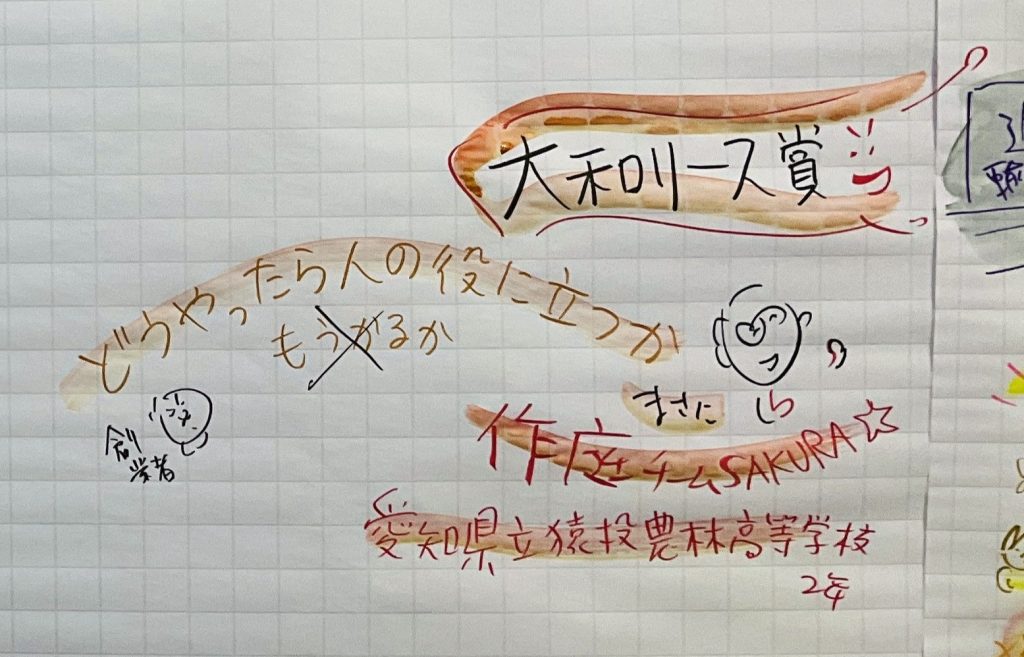 大和リース賞
どうやったら人の役に立つか
もうかるか
創業者
まさに
作庭チームSAKURA☆
愛知県立猿投農林高等学校
2年